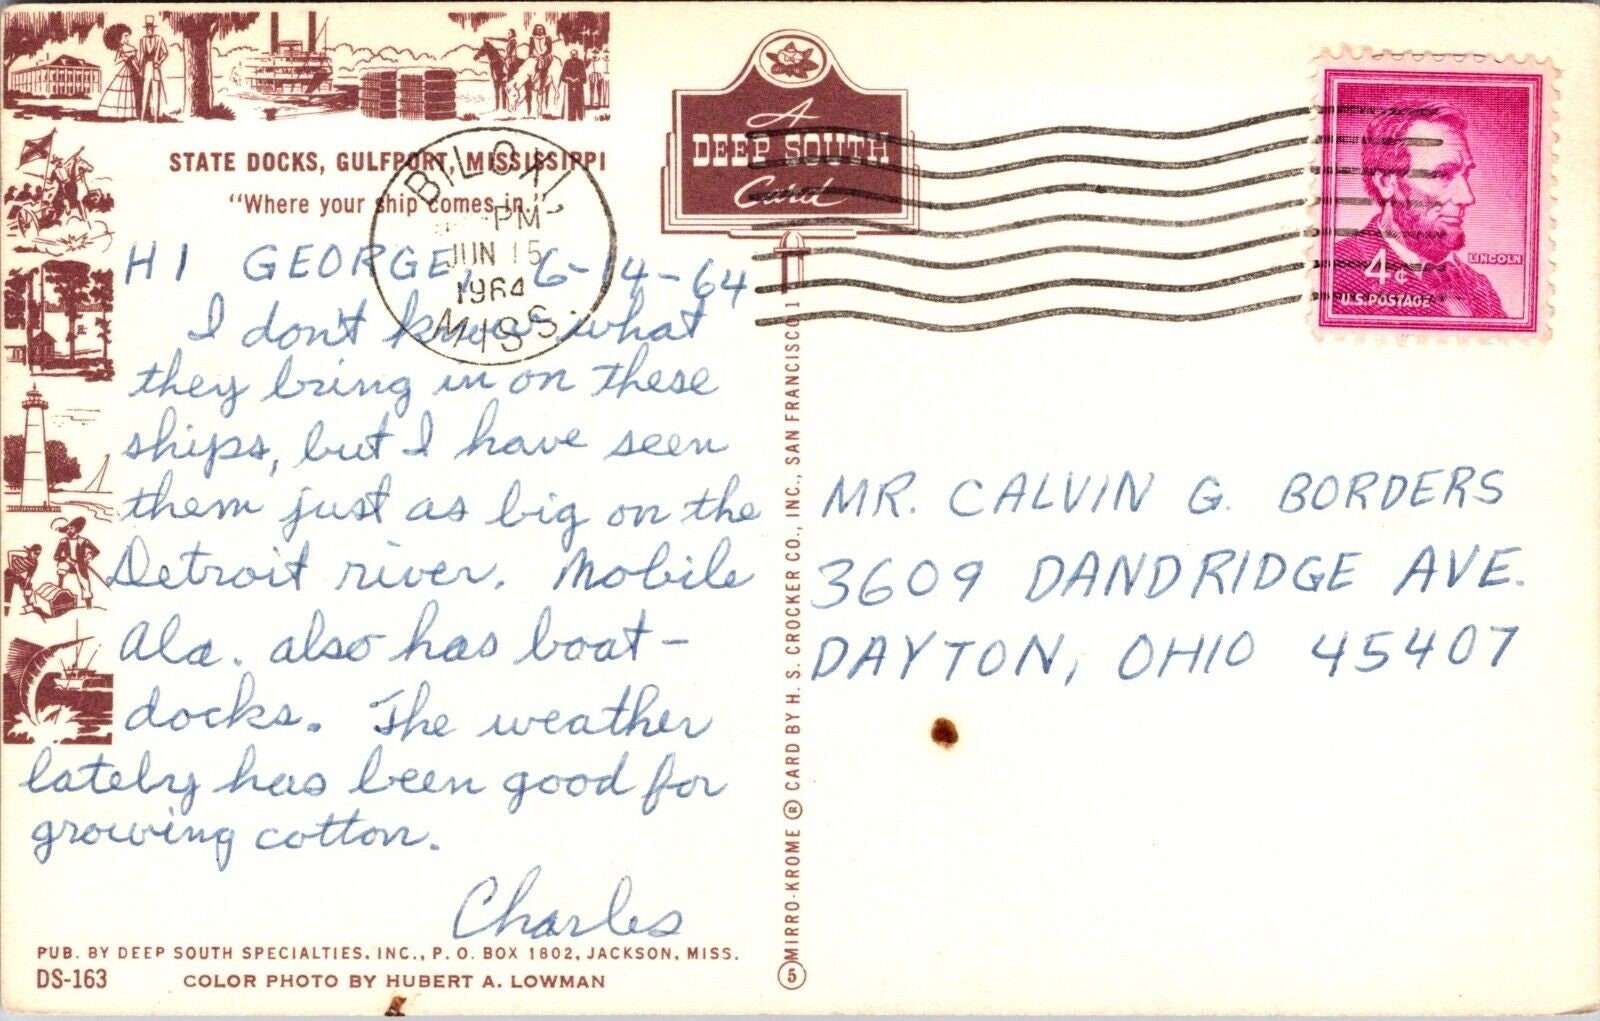 STATE DOCKS, GULFPORT, MISSISSIPPI
"Where your ship comes in."
HI GEORGE, 6-14-64
I don't know what
they bring in on these
ships, but I have seen
them just as big on the
Detroit river. Mobile
Ala. also has boat-
docks. The weather
lately has been good for
growing cotton.
Charles
PUB. BY DEEP SOUTH SPECIALTIES, INC., P. O. BOX 1802, JACKSON, MISS.
DS-163 COLOR PHOTO BY HUBERT A. LOWMAN
BILOXI,
PM
JUN 15
1964
MISS.
A
DEEP SOUTH
Card
5 MIRRO-KROME ® CARD BY H. S. CROCKER CO., INC., SAN FRANCISCO 1
LINCOLN
4¢
U.S. POSTAGE
MR. CALVIN G. BORDERS
3609 DANDRIDGE AVE.
DAYTON, OHIO 45407